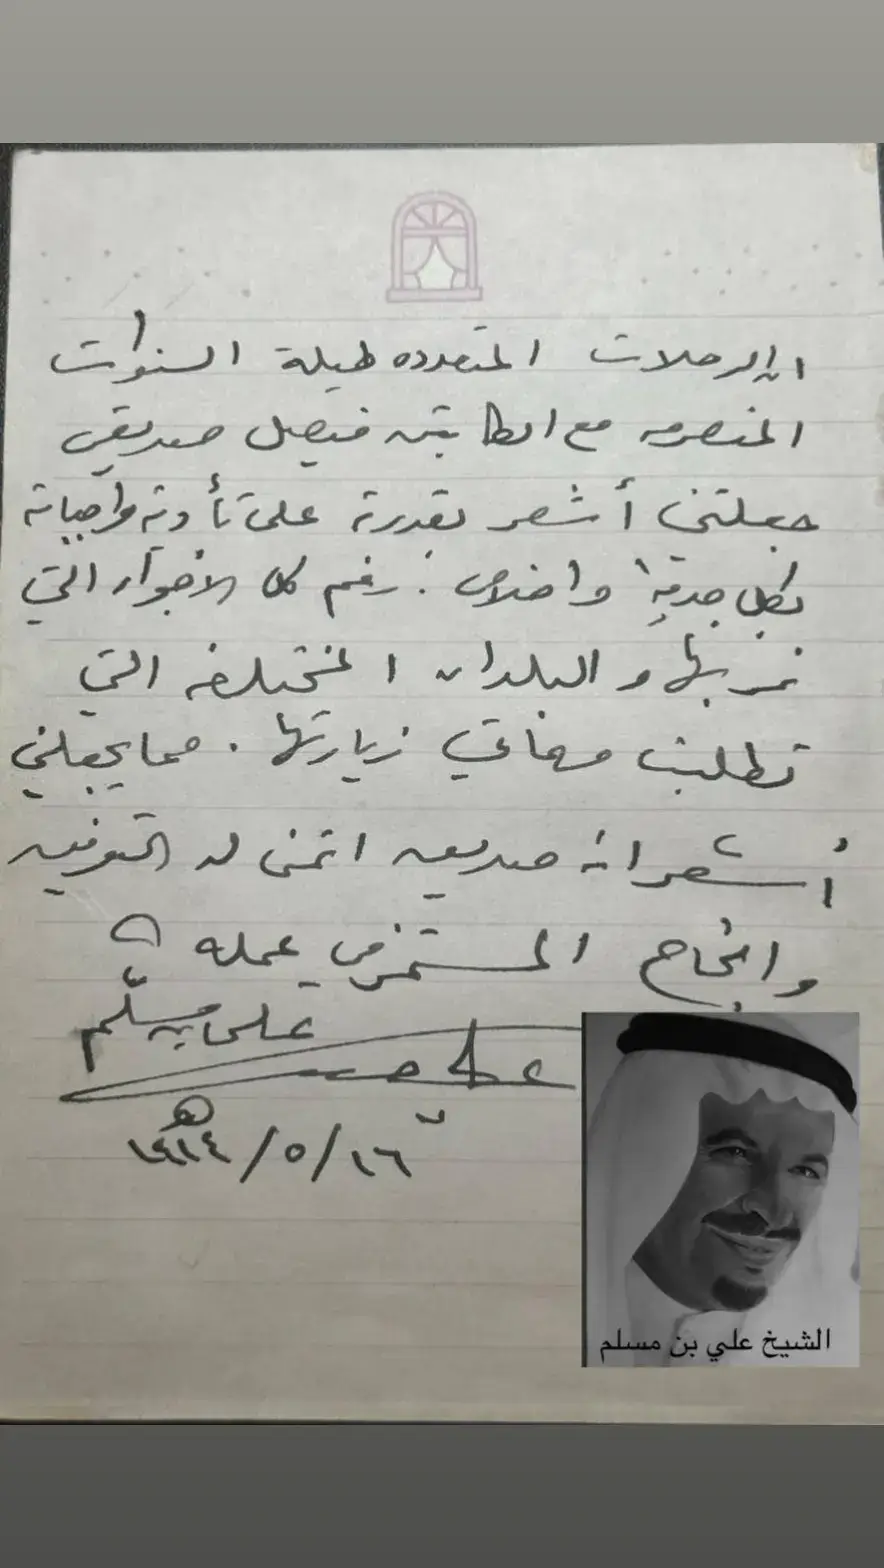 ان الرحلات المتعدده طيلة السنوات
المنصرمه مع الكابتن فيصل صديقي
جعلتني أشعر بقدرته على تأدية واجباته
بكل جدية واخلاص. رغم كل الاجواء التي
نمر بها و البلدان المختلفه التي
تطلبت مهماتي زيارتها. مما يجعلني
أشعر انه صديق اتمنى له التوفيق
والنجاح المستمر في عمله
علي بن مسلّم
١٦/٥/١٤١٤هـ
الشيخ علي بن مسلم